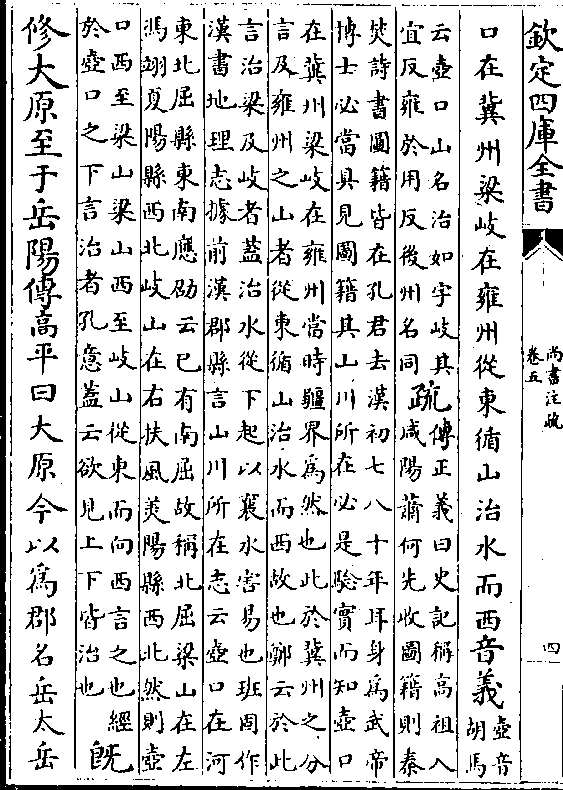 欽定四庫全書
尚書注疏
卷五
四
口在冀州梁岐在雍州從東循山治水而西音義
壺音
胡馬
云壺口山名治如字岐其
宜反雍於用反後州名同
疏
傳正義曰史記稱高祖入
咸陽蕭何先收圖籍則秦
焚詩書圖籍皆在孔君去漢初七八十年耳身為武帝
博士必當具見圖籍其山川所在必是驗實而知壺口
在冀州梁岐在雍州當時疆界為然也此於冀州之分
言及雍州之山者從東循山治水而西故也鄭云於此
言治梁及岐者蓋治水從下起以襄水害易也班固作
漢書地理志據前漢郡縣言山川所在志云壺口在河
東北屈縣東南應劭云已有南屈故稱北屈梁山在左
馮翊夏陽縣西北岐山在右扶風美陽縣西北然則壺
口西至梁山梁山西至岐山從東而向西言之也經
於壺口之下言治者孔意蓋云欲見上下皆治也
既
修大原至于岳陽傳高平曰大原今以為郡名岳太岳